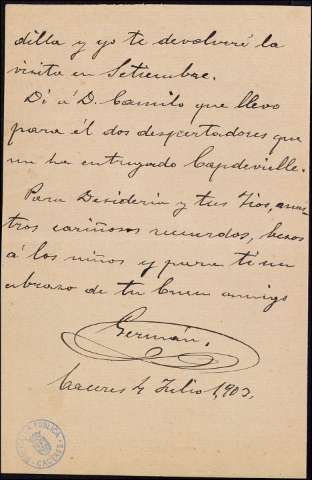 dilla y yo te devolveré la
visita en Setiembre.
Di á D. Camilo que llevo
para él dos despertadores que
me ha entregado Capdevielle.
Para Desideria y tus tios, nues-
tros cariñosos recuerdos, besos
á los niños y para ti un
abrazo de tu buen amigo
Germán.
Caceres 4 Julio 1,903.
PUBLICA
CACERES